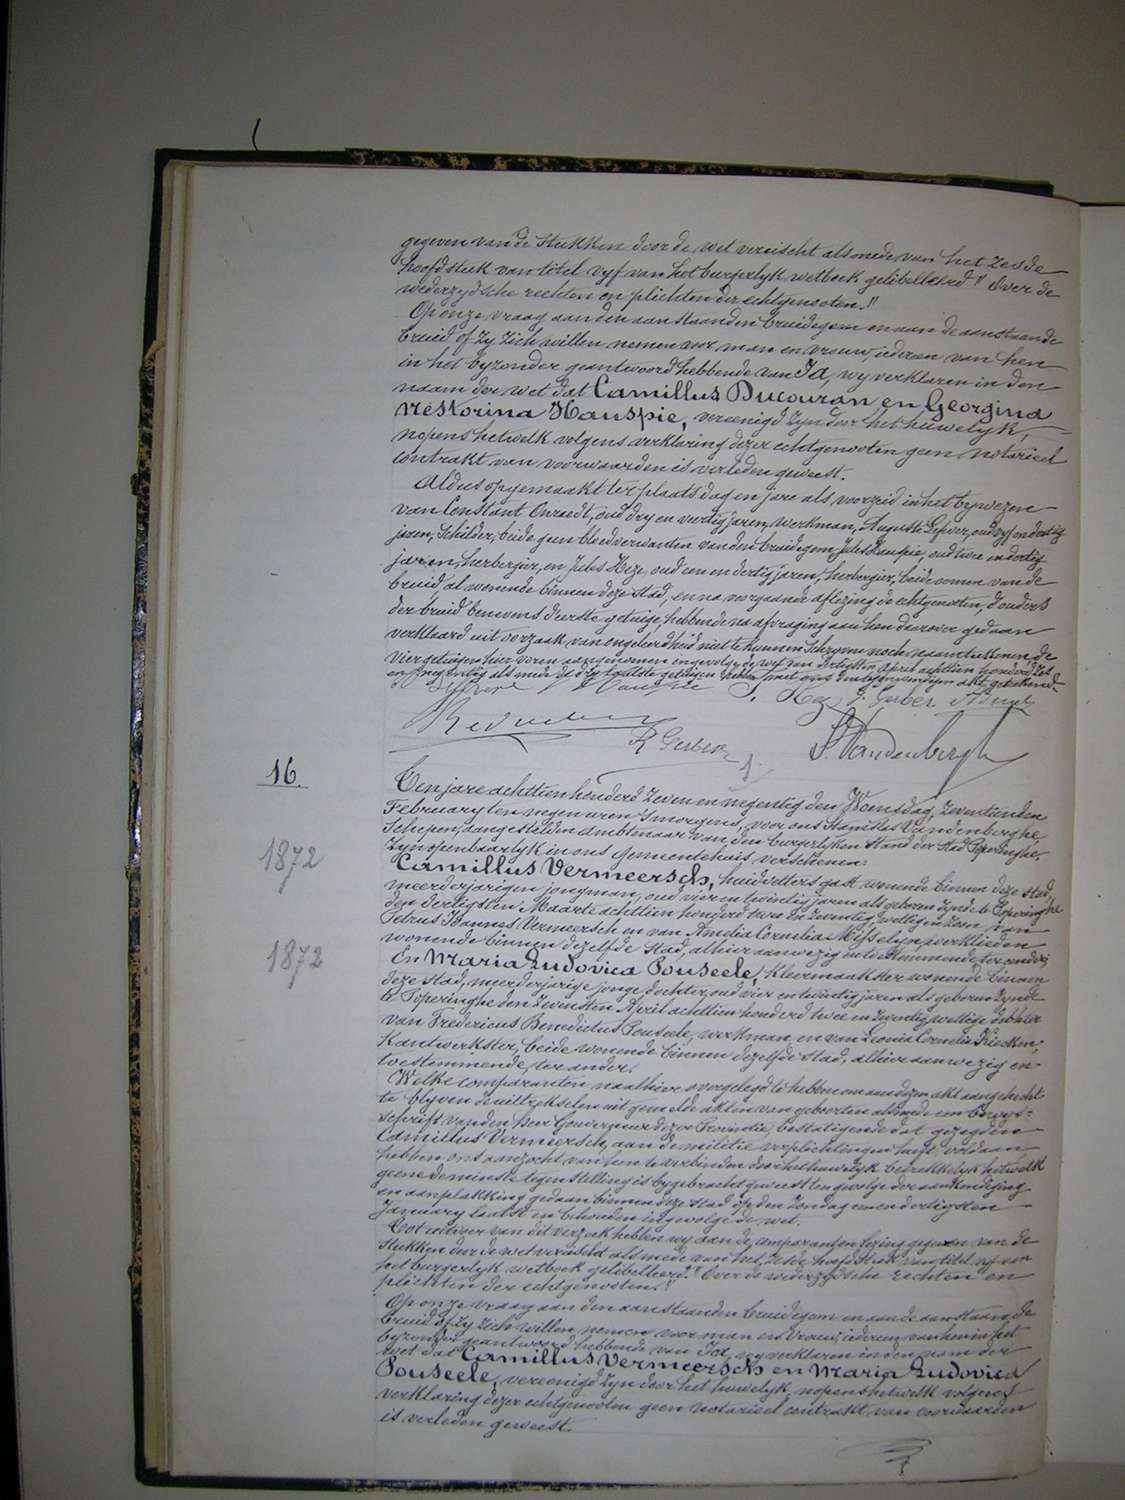 gegeven van de stukken door de wet vereischt alsmede van het zesde
hoofdstuk van titel vyf van het burgerlyk wetboek gelibelleerd " Over de
wederzydsche rechten en plichten der echtgenooten."
Op onze vraag aan den aanstaanden bruidegom en aan de aanstaande
bruid of zy zich willen nemen voor man en vrouw, iedereen van hen
in het byzonder geantwoord hebbende van Ja, wy verklaren in den
naam der wet dat Camillus Ducouran en Georgina
Nestorina Hauspie, vereenigd zyn door het huwelyk,
nopens hetwelk volgens verklaring dezer echtgenooten geen notarieel
contrakt van voorwaarden is verleden geweest.
Aldus opgemaakt ter plaats dag en jare als voorzeid in het bywezen
van Constant Onraedt, oud dry en veertig jaren, werkman, Auguste Lefever, oud vyf en dertig
jaren, schilder, beide geen bloedverwanten van den bruidegom, Jules Hauspie, oud twee en dertig
jaren, herbergier, en Jules Heze, oud een en dertig jaren, herbergier, beide oomen van de
bruid al wonende binnen deze stad, en na voorgaande aflezing de echtgenooten, d'ouders
der bruid benevens d'eerste getuige, hebbende na afvraging aan hen daarover gedaan
verklaard uit oorzaak van ongeleerdheid niet te kunnen schryven noch naamteekenen, de
vier getuigen hier voren aangenomen ingevolge de wet van dertigsten April achttien honderd zes
en negentig als mede de dry laatste getuigen hebben met ons den tegenwoordigen akt geteekend.
J. Hez G. Gerber
R Gerber S. Vandenberghe
16.
Ten jare achttien honderd zeven en negentig den Woensdag, zeventienden
February ten negen uren 's morgens, voor ons Stanislas Vandenberghe,
Schepen, aangestelden ambtenaar van den burgerlyken stand der stad Poperinghe,
zyn openbaarlyk in ons gemeentehuis verschenen:
1872
Camillus Vermeersch, huidvettersgast wonende binnen deze stad,
meerderjarigen jongman, oud vier en twintig jaren als geboren zynde te Poperinghe
den dertigsten Maarte achttien honderd twee en zeventig, wettigen zoon van
Petrus Joannes Vermeersch en van Amelia Cornelia Misselyn, werklieden
wonende binnen dezelfde stad, alhier aanwezig en toestemmende, ter eender;
1872
En Maria Ludovica Pouseele, kleermaakster wonende binnen
deze stad, meerderjarige jonge dochter, oud vier en twintig jaren als geboren zynde
te Poperinghe den zevensten April achttien honderd twee en zeventig, wettige dochter
van Fredericus Benedictus Pouseele, werkman, en van Leonia Cornelia
Kantwerkster, beide wonende binnen dezelfde stad, alhier aanwezig en
toestemmende, ter ander.
Welke comparanten na alhier overgelegd te hebben om aan dezen akt aangehecht
te blyven de uittrekselen uit gemelde akten van geboorten alsmede een bewys=
schrift van den Heer Gouverneur dezer Provintie, bestatigende dat gezegden
Camillus Vermeersch, aan de militie verplichtingen heeft voldaan,
hebben ons aanzocht van hen te verbinden door het huwelyk betrekkelyk hetwelk
geene de minste tegenstelling is bygebracht geweest ten gevolge der aankondiging
en aanplakking gedaan binnen deze stad op den zondag een en dertigsten
January laatst en behouden ingevolge de wet.
Tot antwoord van dit verzoek hebben wy aan de comparanten lezing gegeven van de
stukken door de wet vereischt alsmede van het zesde hoofdstuk van titel vyf van
het burgerlyk wetboek gelibelleerd " Over de wederzydsche rechten en
plichten der echtgenooten."
Op onze vraag aan den aanstaanden bruidegom en aan de aanstaande
bruid of zy zich willen nemen voor man en vrouw, iedereen van hen in het
byzonder geantwoord hebbende van Ja, wy verklaren in den naam der
wet dat Camillus Vermeersch en Maria Ludovica
Pouseele, vereenigd zyn door het huwelyk, nopens hetwelk volgens
verklaring dezer echtgenooten geen notarieel contrakt van voorwaarden
is verleden geweest.